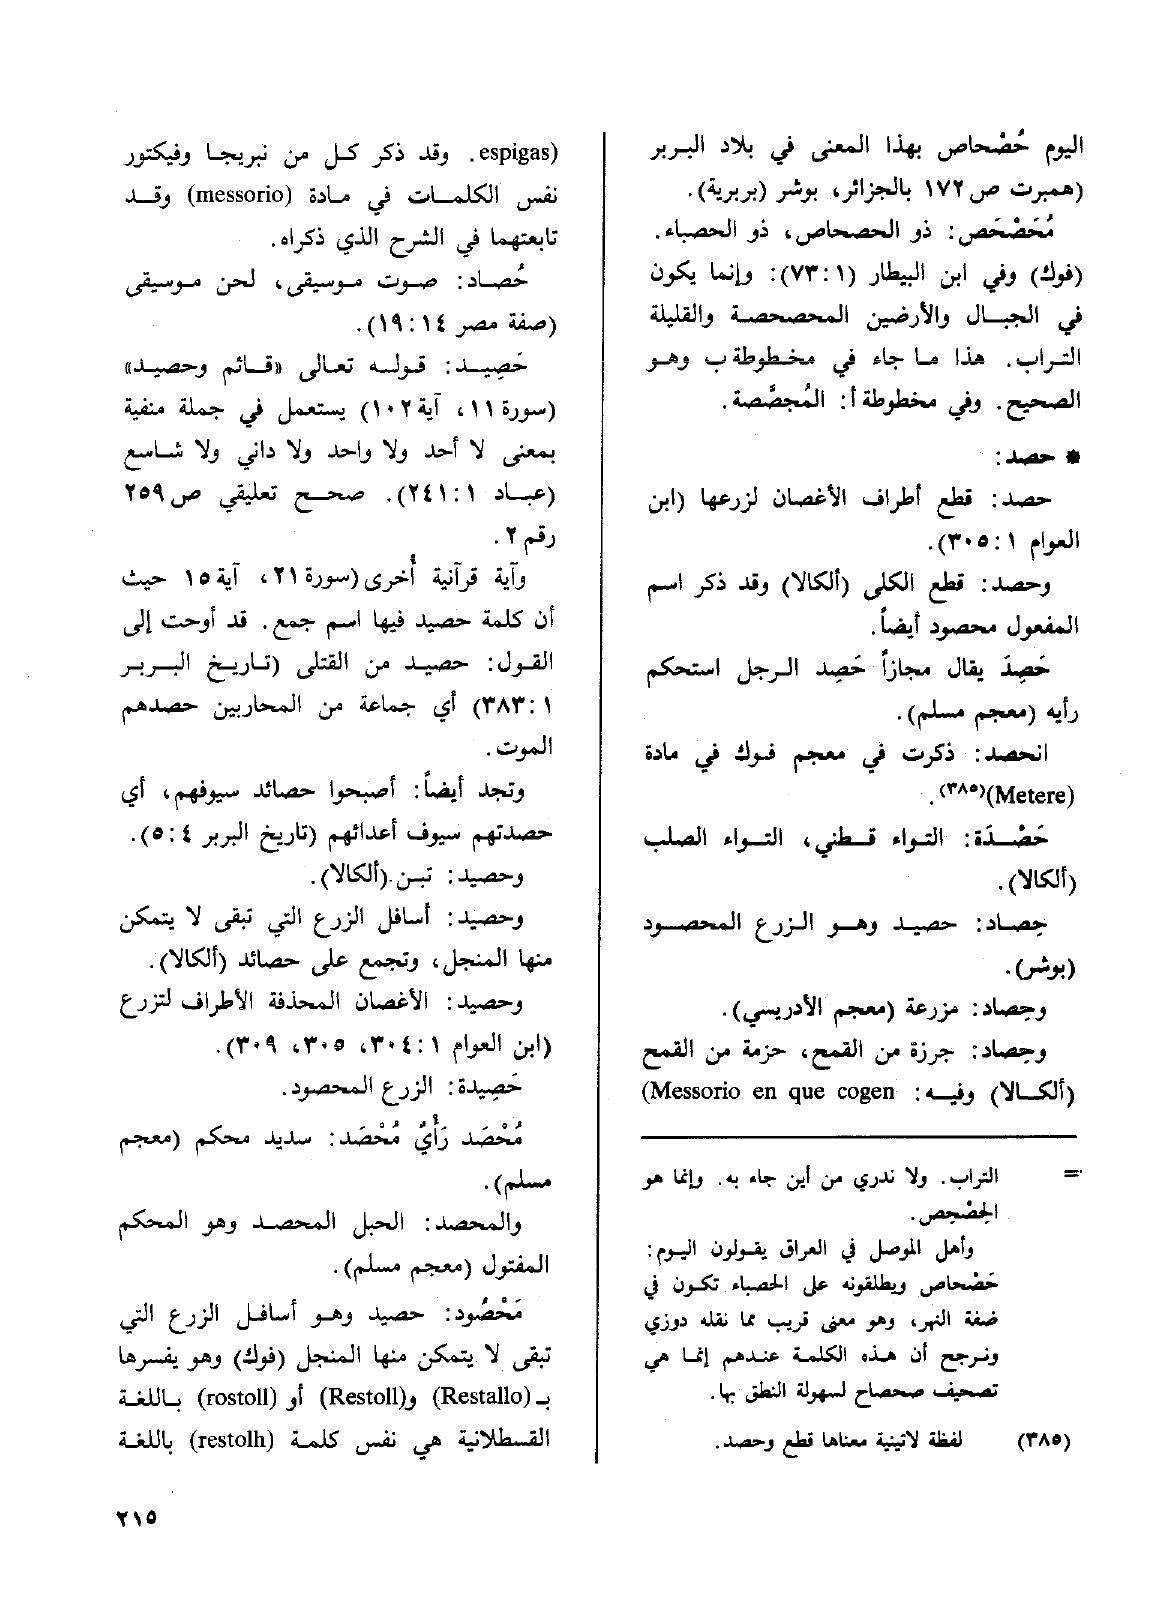 اليوم حُصْحاص بهذا المعنى في بلاد البربر
(همبرت ص ١٧٢ بالجزائر، بوشر (بربرية).
مُحَصْحَص: ذو الحصحاص، ذو الحصباء.
(فوك) وفي ابن البيطار (١: ٧٣): وإنما يكون
في الجبال والأرضين المحصحصة والقليلة
التراب. هذا ما جاء في مخطوطة ب وهو
الصحيح. وفي مخطوطة أ: المُجصَّصة.
* حصد:
حصد: قطع أطراف الأغصان لزرعها (ابن
العوام ١: ٣٠٥).
وحصد: قطع الكلى (ألكالا) وقد ذكر اسم
المفعول محصود أيضاً.
حَصِدَ يقال مجازاً حَصِد الرجل استحكم
رأيه (معجم مسلم).
انحصد: ذكرت في معجم فوك في مادة
(Metere)(٣٨٥).
حَصْدَة: التواء قطني، التواء الصلب
(ألكالا).
حِصاد: حصيد وهو الزرع المحصود
(بوشر).
وحِصاد: مزرعة (معجم الأدريسي).
وحِصاد: جرزة من القمح، حزمة من القمح
(ألكالا) وفيه: Messorio en que cogen)
= التراب. ولا ندري من أين جاء به. وإنما هو
الحِصْحِص.
وأهل الموصل في العراق يقولون اليوم:
حَصْحاص ويطلقونه على الحصباء تكون في
ضفة النهر، وهو معنى قريب مما نقله دوزي
ونرجح أن هذه الكلمة عندهم إنما هي
تصحيف صحصاح لسهولة النطق بها.
(٣٨٥) لفظة لاتينية معناها قطع وحصد.
espigas). وقد ذكر كل من نبريجا وفيكتور
نفس الكلمات في مادة (messorio) وقد
تابعتهما في الشرح الذي ذكراه.
حُصاد: صوت موسيقى، لحن موسيقى
(صفة مصر ١٤: ١٩).
حَصِيد: قوله تعالى «قائم وحصيد»
(سورة ١١، آية ١٠٢) يستعمل في جملة منفية
بمعنى لا أحد ولا واحد ولا داني ولا شاسع
(عباد ١: ٢٤١). صحح تعليقي ص ٢٥٩
رقم ٢.
وآية قرآنية أُخرى (سورة ٢١، آية ١٥ حيث
أن كلمة حصيد فيها اسم جمع. قد أوحت إلى
القول: حصيد من القتلى (تاريخ البربر
١: ٣٨٣) أي جماعة من المحاربين حصدهم
الموت.
وتجد أيضاً: أصبحوا حصائد سيوفهم، أي
حصدتهم سيوف أعدائهم (تاريخ البربر ٤: ٥).
وحصيد: تبن (ألكالا).
وحصيد: أسافل الزرع التي تبقى لا يتمكن
منها المنجل، وتجمع على حصائد (ألكالا).
وحصيد: الأغصان المحذفة الأطراف لتزرع
(ابن العوام ١: ٣٠٤، ٣٠٥، ٣٠٩).
حَصِيدة: الزرع المحصود.
مُحْصَد رَأْيٌ مُحْصَد: سديد محكم (معجم
مسلم).
والمحصد: الحبل المحصد وهو المحكم
المفتول (معجم مسلم).
مَحْصُود: حصيد وهو أسافل الزرع التي
تبقى لا يتمكن منها المنجل (فوك) وهو يفسرها
بـ (Restallo) و(Restoll) أو (rostoll) باللغة
القسطلانية هي نفس كلمة (restolh) باللغة
٢١٥